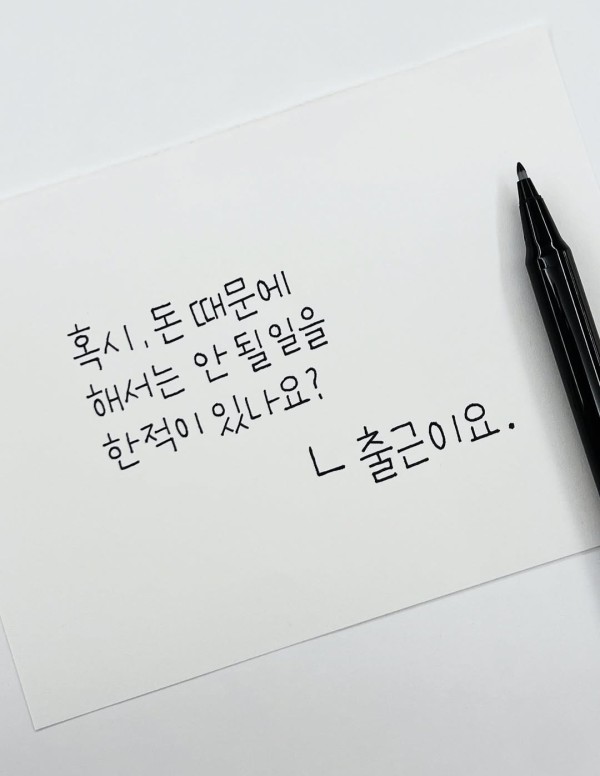 혹시, 돈 때문에
해서는 안 될일을
한적이 있나요?
ㄴ 출근이요.